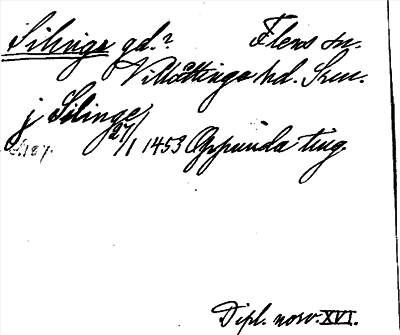 Silinge gd.? Flens sn.
Villåttinge hd. Srm.
j Silinge
27/1 1453 Oppunda ting.
s. 187.
Dipl. norv. XVI.